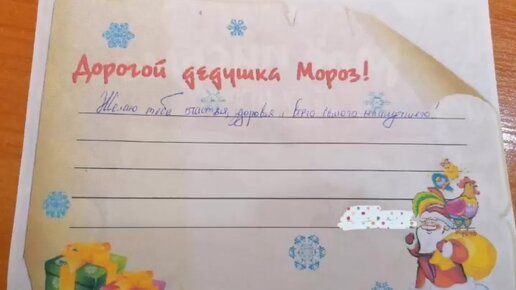 Дорогой дедушка Мороз!
Желаю тебе счастья, здоровья и всего самого наилучшего!